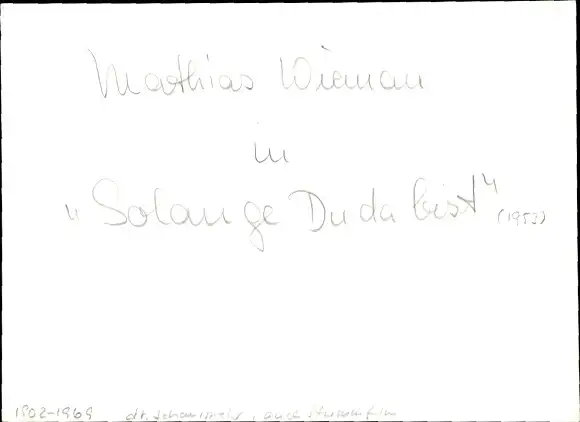 Mathias Wieman
in
"Solange Du da bist" (1953)
1902-1969 dt. Schauspieler, auch Stummfilm